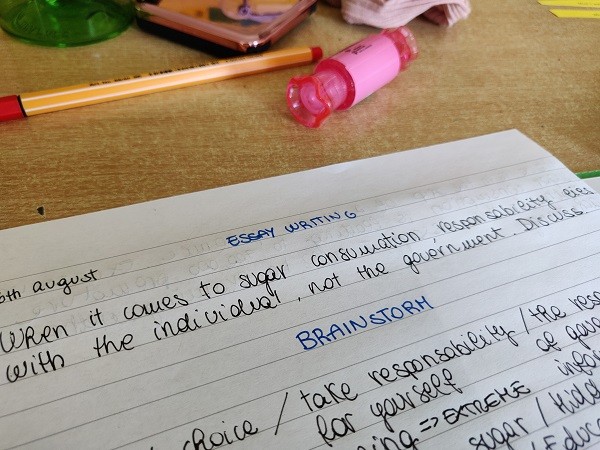 ESSAY WRITING
5th august
When it comes to sugar consumation responsability lies
with the individual, not the government. Discuss.
BRAINSTORM
choice / take responsability / the
for yourself of
=> EXTREME
sugar /